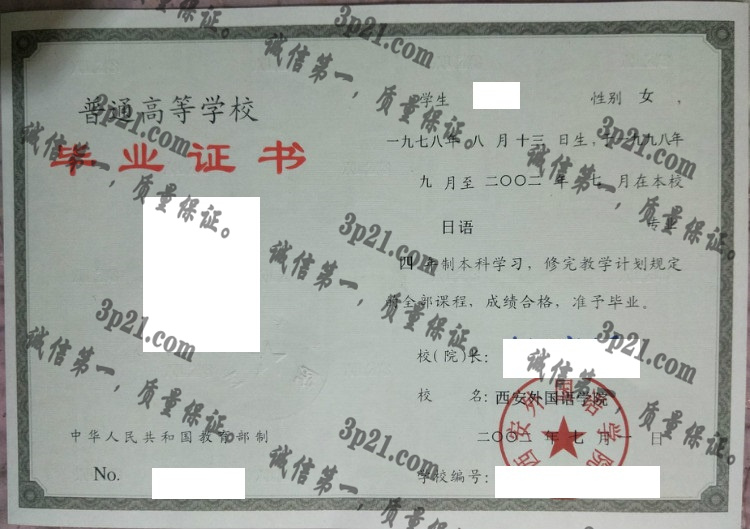 普通高等学校
毕业证书
中华人民共和国教育部制
No.
学生 性别 女 ，
一九七八年 八 月 十三 日生，于一九九八年
九 月至 二〇〇二 年 七 月在本校
日语 专业
四 年制本科学习，修完教学计划规定
的全部课程，成绩合格，准予毕业。
校（院）长：
校 名：西安外国语学院
二〇〇二 年 七 月 一 日
学校编号：
西安外国语学院
3p21.com
诚信第一，质量保证。
3p21.com
诚信第一，质量保证。
3p21.com
诚信第一，质量保证。
3p21.com
诚信第一，质量保证。
3p21.com
诚信第一，质量保证。
3p21.com
诚信第一，质量保证。
3p21.com
诚信第一，质量保证。
质量保证。